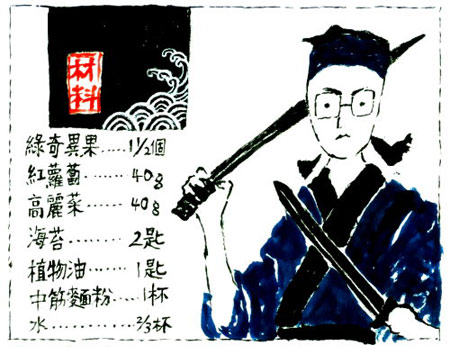 材料
綠奇異果.....1 1/2個
紅蘿蔔..... 40g
高麗菜..... 40g
海苔......... 2匙
植物油...... 1匙
中筋麵粉.... 1杯
水 .......... 2/3杯